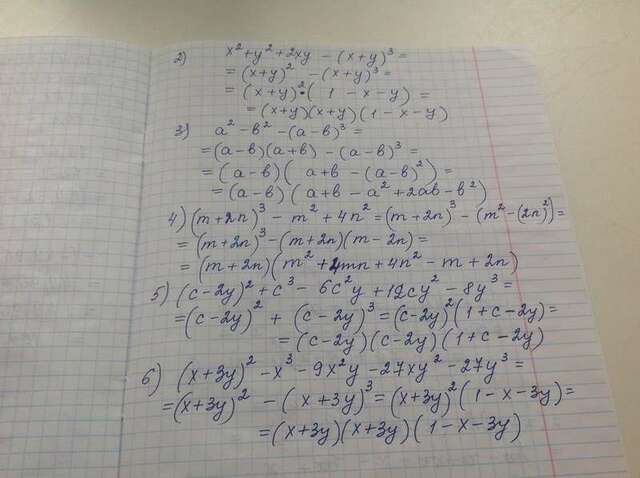 2) x² + y² + 2xy - (x+y)³ =
= (x+y)² - (x+y)³ =
= (x+y)²·( 1 - x - y) =
= (x+y)(x+y)(1 - x - y)
3) a² - в² - (a-в)³ =
= (a-в)(a+в) - (a-в)³ =
= (a-в)( a+в - (a-в)²) =
= (a-в)(a+в - a² + 2aв - в²)
4) (m+2n)³ - m² + 4n² = (m+2n)³ - (m² - (2n)²) =
= (m+2n)³ - (m+2n)(m-2n) =
= (m+2n)(m² + 4mn + 4n² - m + 2n)
5) (c-2y)² + c³ - 6c²y + 12cy² - 8y³ =
= (c-2y)² + (c-2y)³ = (c-2y)²(1+c-2y) =
= (c-2y)(c-2y)(1+c-2y)
6) (x+3y)² - x³ - 9x²y - 27xy² - 27y³ =
= (x+3y)² - (x+3y)³ = (x+3y)²(1-x-3y) =
= (x+3y)(x+3y)(1-x-3y)